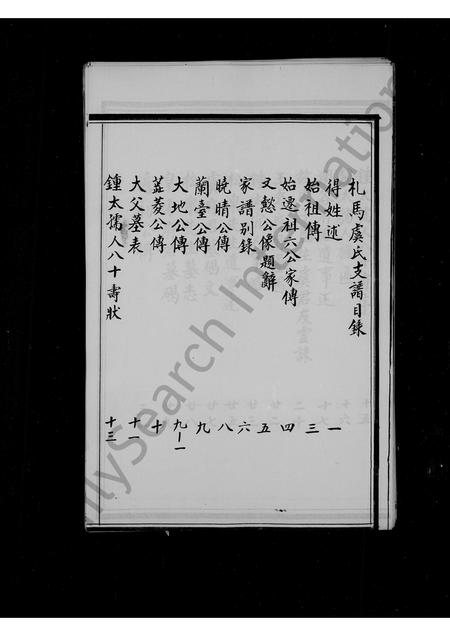 札馬虞氏支譜目錄
得姓述 一
始祖傳 三
始遷祖六公家傳 四
又愨公像題辭 五
家譜別錄 六
曉晴公傳 八
蘭臺公傳 九
大地公傳 九-一
菱公傳 十
大父墓表 十一
鍾太孺人八十壽狀 十三
FamilySearch International